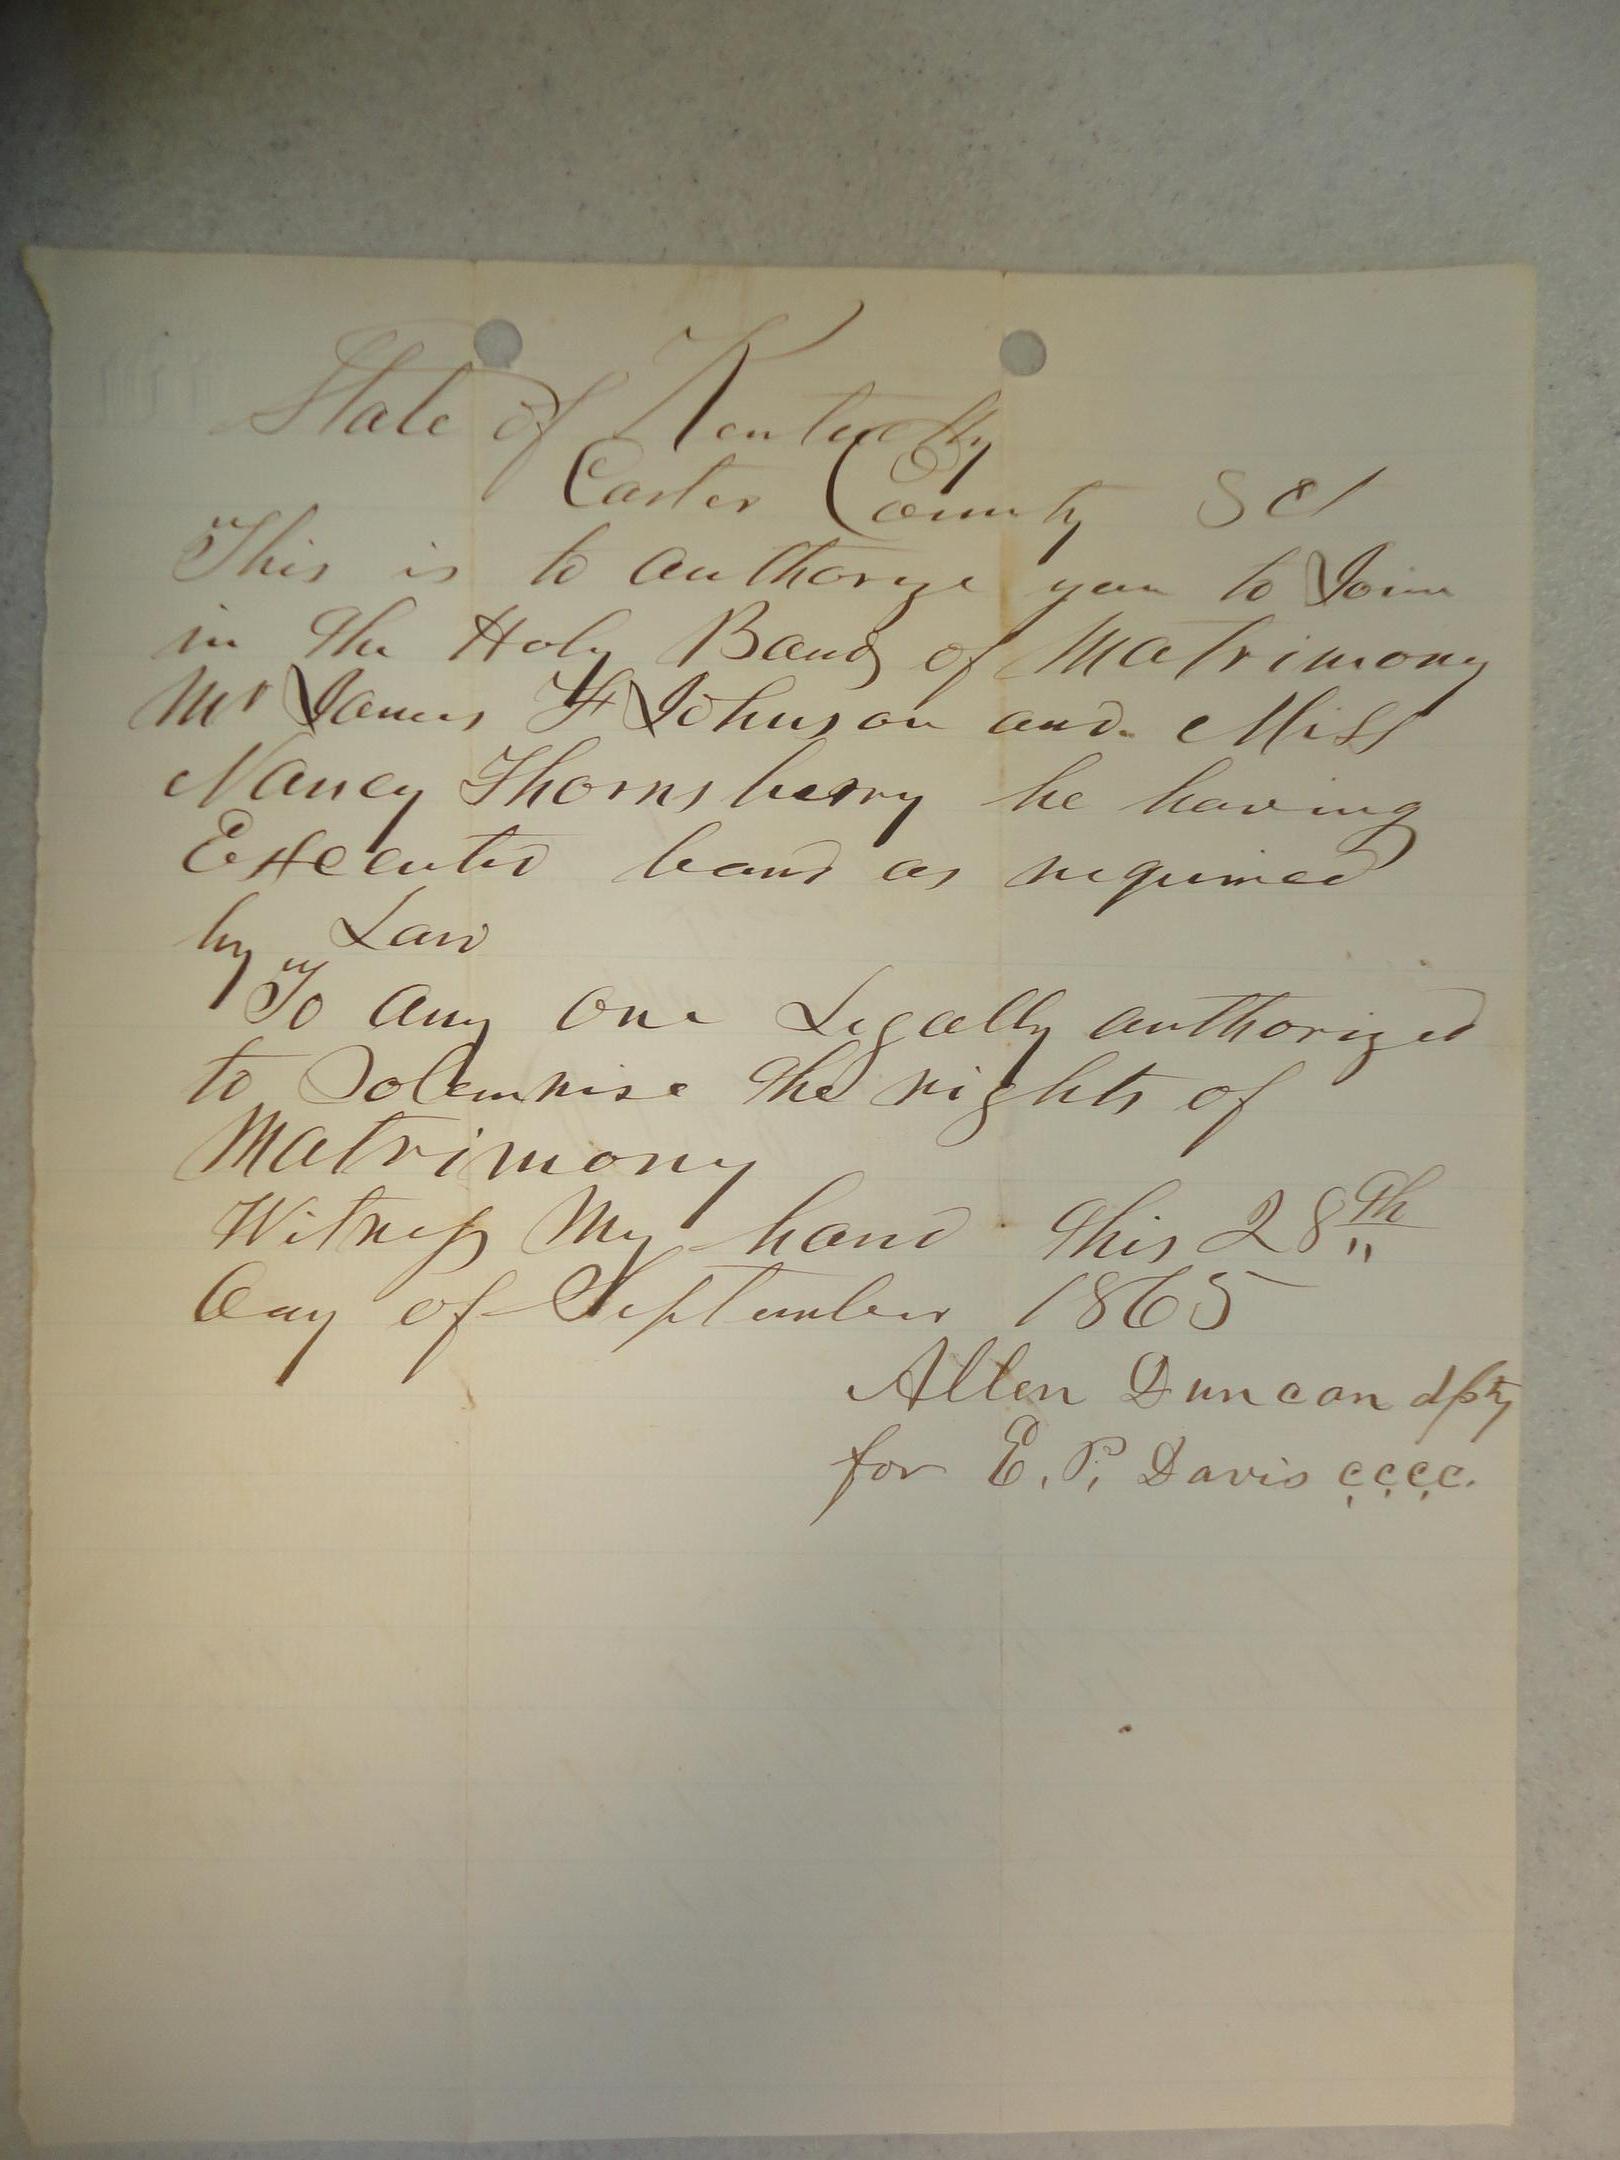 State of Kentucky
Carter County Sct
This is to authorize you to Join
in the Holy Bands of Matrimony
Mr James H Johnson and Miss
Nancy Thornsberry he having
Executed bond as required
by Law
To any one Legally authorized
to Solemnise the rights of
Matrimony
Witness My hand this 28th
Day of September 1865
Allen Duncan dpty
for E. P. Davis C.C.C.C.